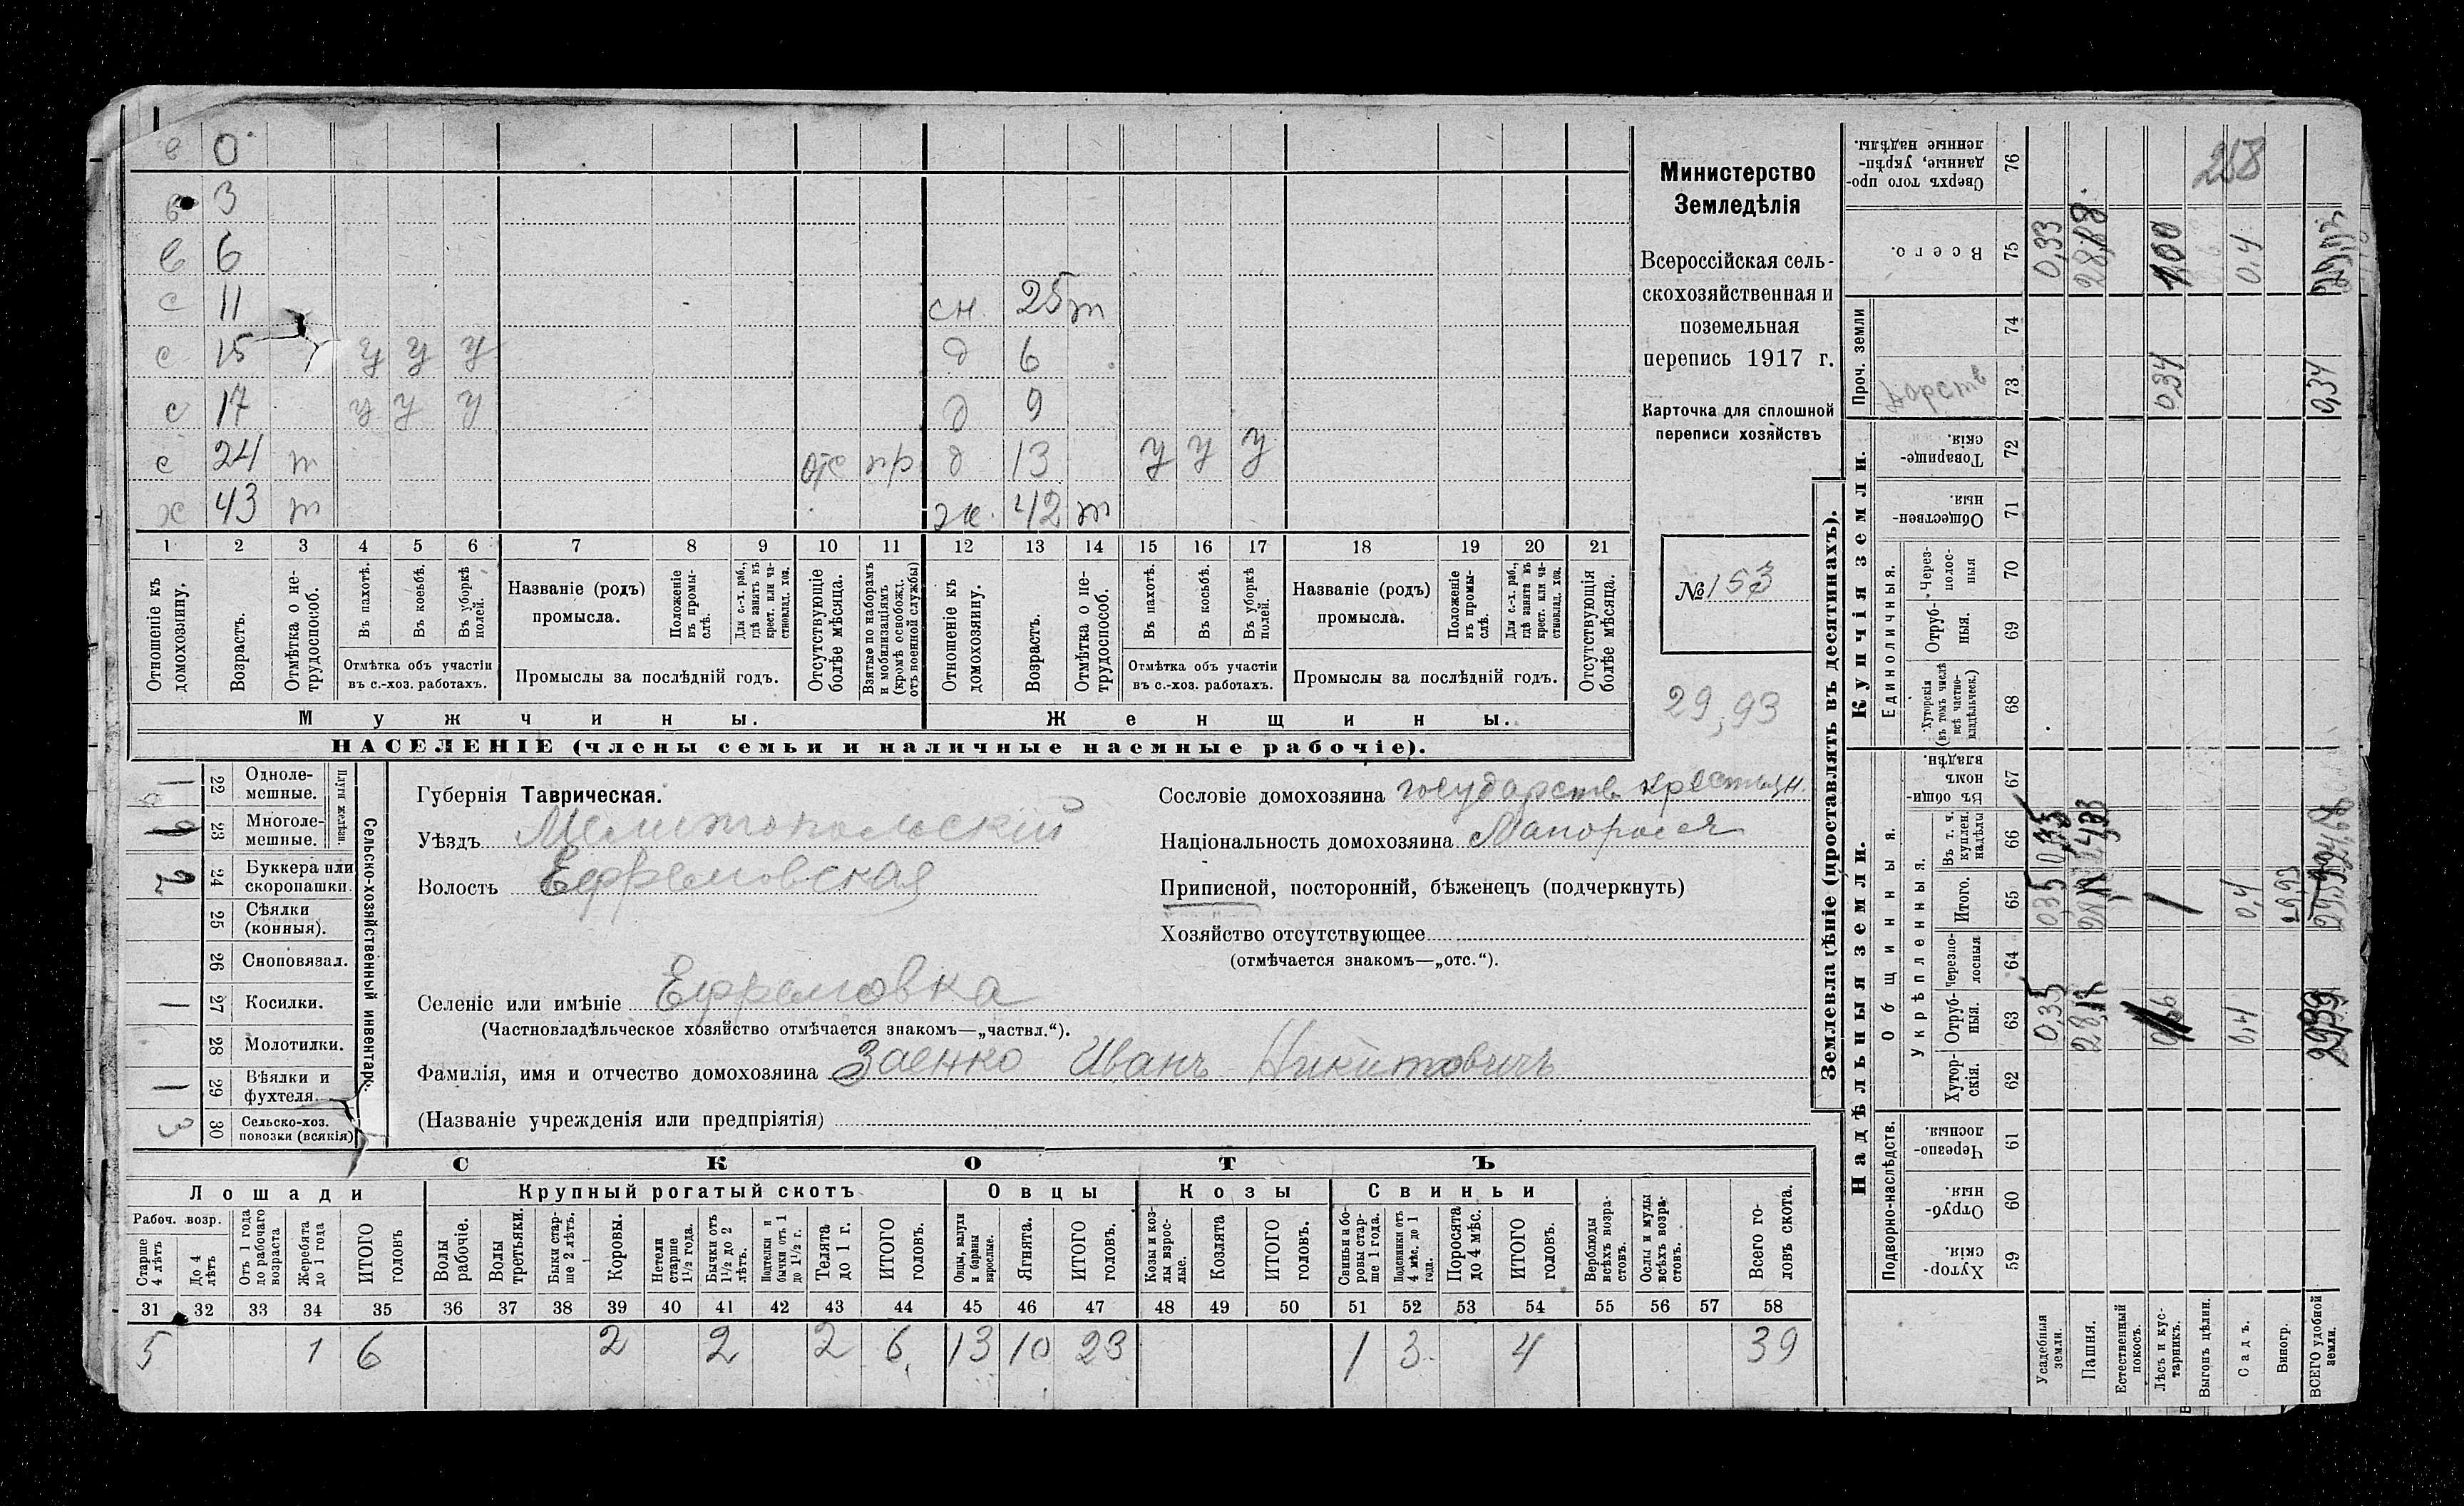 в 0
в 3
в 6
с 11 сн. 25 т
с 15 у у у д 6
с 17 у у у д 9
с 24 т отс пр д 13 у у у
х 43 т ж. 42 т
1 2 3 4 5 6 7 8 9 10 11 12 13 14 15 16 17 18 19 20 21
Отношеніе къ домохозяину.
Возрастъ.
Отмѣтка о не-трудоспособ.
Въ пахотѣ.
Въ косьбѣ.
Въ уборкѣ полей.
Отмѣтка объ участіи
въ с.-хоз. работахъ.
Названіе (родъ)
промысла.
Положеніе въ промы-слѣ.
Для с.-х. раб., гдѣ занятъ въ крест. или ча-стновлад. хоз.
Промыслы за послѣдній годъ.
Отсутствующіе болѣе мѣсяца.
Взятые по наборамъ и мобилизаціямъ (кромѣ освобожд. отъ военной службы)
Отношеніе къ домохозяину.
Возрастъ.
Отмѣтка о не-трудоспособ.
Въ пахотѣ.
Въ косьбѣ.
Въ уборкѣ полей.
Отмѣтка объ участіи
въ с.-хоз. работахъ.
Названіе (родъ)
промысла.
Положеніе въ промы-слѣ.
Для с.-х. раб., гдѣ занята въ крест. или ча-стновлад. хоз.
Промыслы за послѣдній годъ.
Отсутствующія болѣе мѣсяца.
Мужчины. Женщины.
НАСЕЛЕНІЕ (члены семьи и наличные наемные рабочіе).
Министерство
Земледѣлія
Всероссійская сель-
скохозяйственная и
поземельная
перепись 1917 г.
Карточка для сплошной
переписи хозяйствъ
№ 153
29,93
Сельско-хозяйственный инвентарь.
Плуги желѣзн.
1 22 Одноле-мешные.
23 Многоле-мешные.
2 24 Буккера или скоропашки.
25 Сѣялки (конныя).
26 Сноповязал.
1 27 Косилки.
28 Молотилки.
1 29 Вѣялки и фухтеля.
3 30 Сельско-хоз. повозки (всякія)
Губернія Таврическая.
Уѣздъ Мелитопольскій
Волость Ефремовская
Селеніе или имѣніе Ефремовка
(Частновладѣльческое хозяйство отмѣчается знакомъ—„частвл.“).
Фамилія, имя и отчество домохозяина Заенко Иванъ Никитовичъ
(Названіе учрежденія или предпріятія)
Сословіе домохозяина государств. крестьян.
Національность домохозяина Малоросся
Приписной, посторонній, бѣженецъ (подчеркнуть)
Хозяйство отсутствующее
(отмѣчается знакомъ—„отс.“).
СКОТЪ
Лошади Крупный рогатый скотъ Овцы Козы Свиньи
Рабоч. возр.
Старше 4 лѣтъ
До 4 лѣтъ
Отъ 1 года до рабочаго возраста
Жеребята до 1 года
ИТОГО головъ
Волы рабочіе.
Волы третьяки.
Быки стар-ше 2 лѣтъ.
Коровы.
Нетели старше 1½ года.
Бычки отъ 1½ до 2 лѣтъ.
Подтелки и бычки отъ 1 до 1½ г.
Телята до 1 г.
ИТОГО головъ.
Овцы, валухи и бараны взрослые.
Ягнята.
ИТОГО головъ.
Козы и коз-лы взрос-лые.
Козлята
ИТОГО головъ.
Свиньи и бо-ровы стар-ше 1 года.
Подсвинки отъ 4 мѣс. до 1 года.
Поросята до 4 мѣс.
ИТОГО головъ.
Верблюды всѣхъ возра-стовъ.
Ослы и мулы всѣхъ возра-стовъ.
Всего го-ловъ скота.
31 32 33 34 35 36 37 38 39 40 41 42 43 44 45 46 47 48 49 50 51 52 53 54 55 56 57 58
5 1 6 2 2 2 6 13 10 23 1 3 4 39
Землевладѣніе (проставлять въ десятинахъ).
Надѣльныя земли. Купчія земли. Проч. земли
Подворно-наслѣдств.
Общинныя.
Укрѣпленныя.
Единоличныя.
Хутор-скія. 59
Отруб-ныя. 60
Черезпо-лосныя. 61
Хутор-скія. 62
Отруб-ныя. 63
Черезпо-лосныя 64
Итого. 65
Въ т. ч. куплен. надѣлы 66
Въ общи-номъ владѣн. 67
Хуторскія (въ томъ числѣ всѣ частно-владѣльчек.) 68
Отруб-ныя. 69
Через-полос-ныя 70
Обществен-ныя. 71
Товарище-скія. 72
73
74
Всего. 75
Сверхъ того про-данные, укрѣп-ленные надѣлы. 76
Усадебныя земли. 0,35 0,33
Пашня.
Естественный покосъ.
Лѣсъ и кус-тарникъ. 1 0,34 1,00
Выгонъ цѣлин. 258
Садъ. 0,4 0,4 0,4
Виногр. 29,93
ВСЕГО удобной земли. 0,34